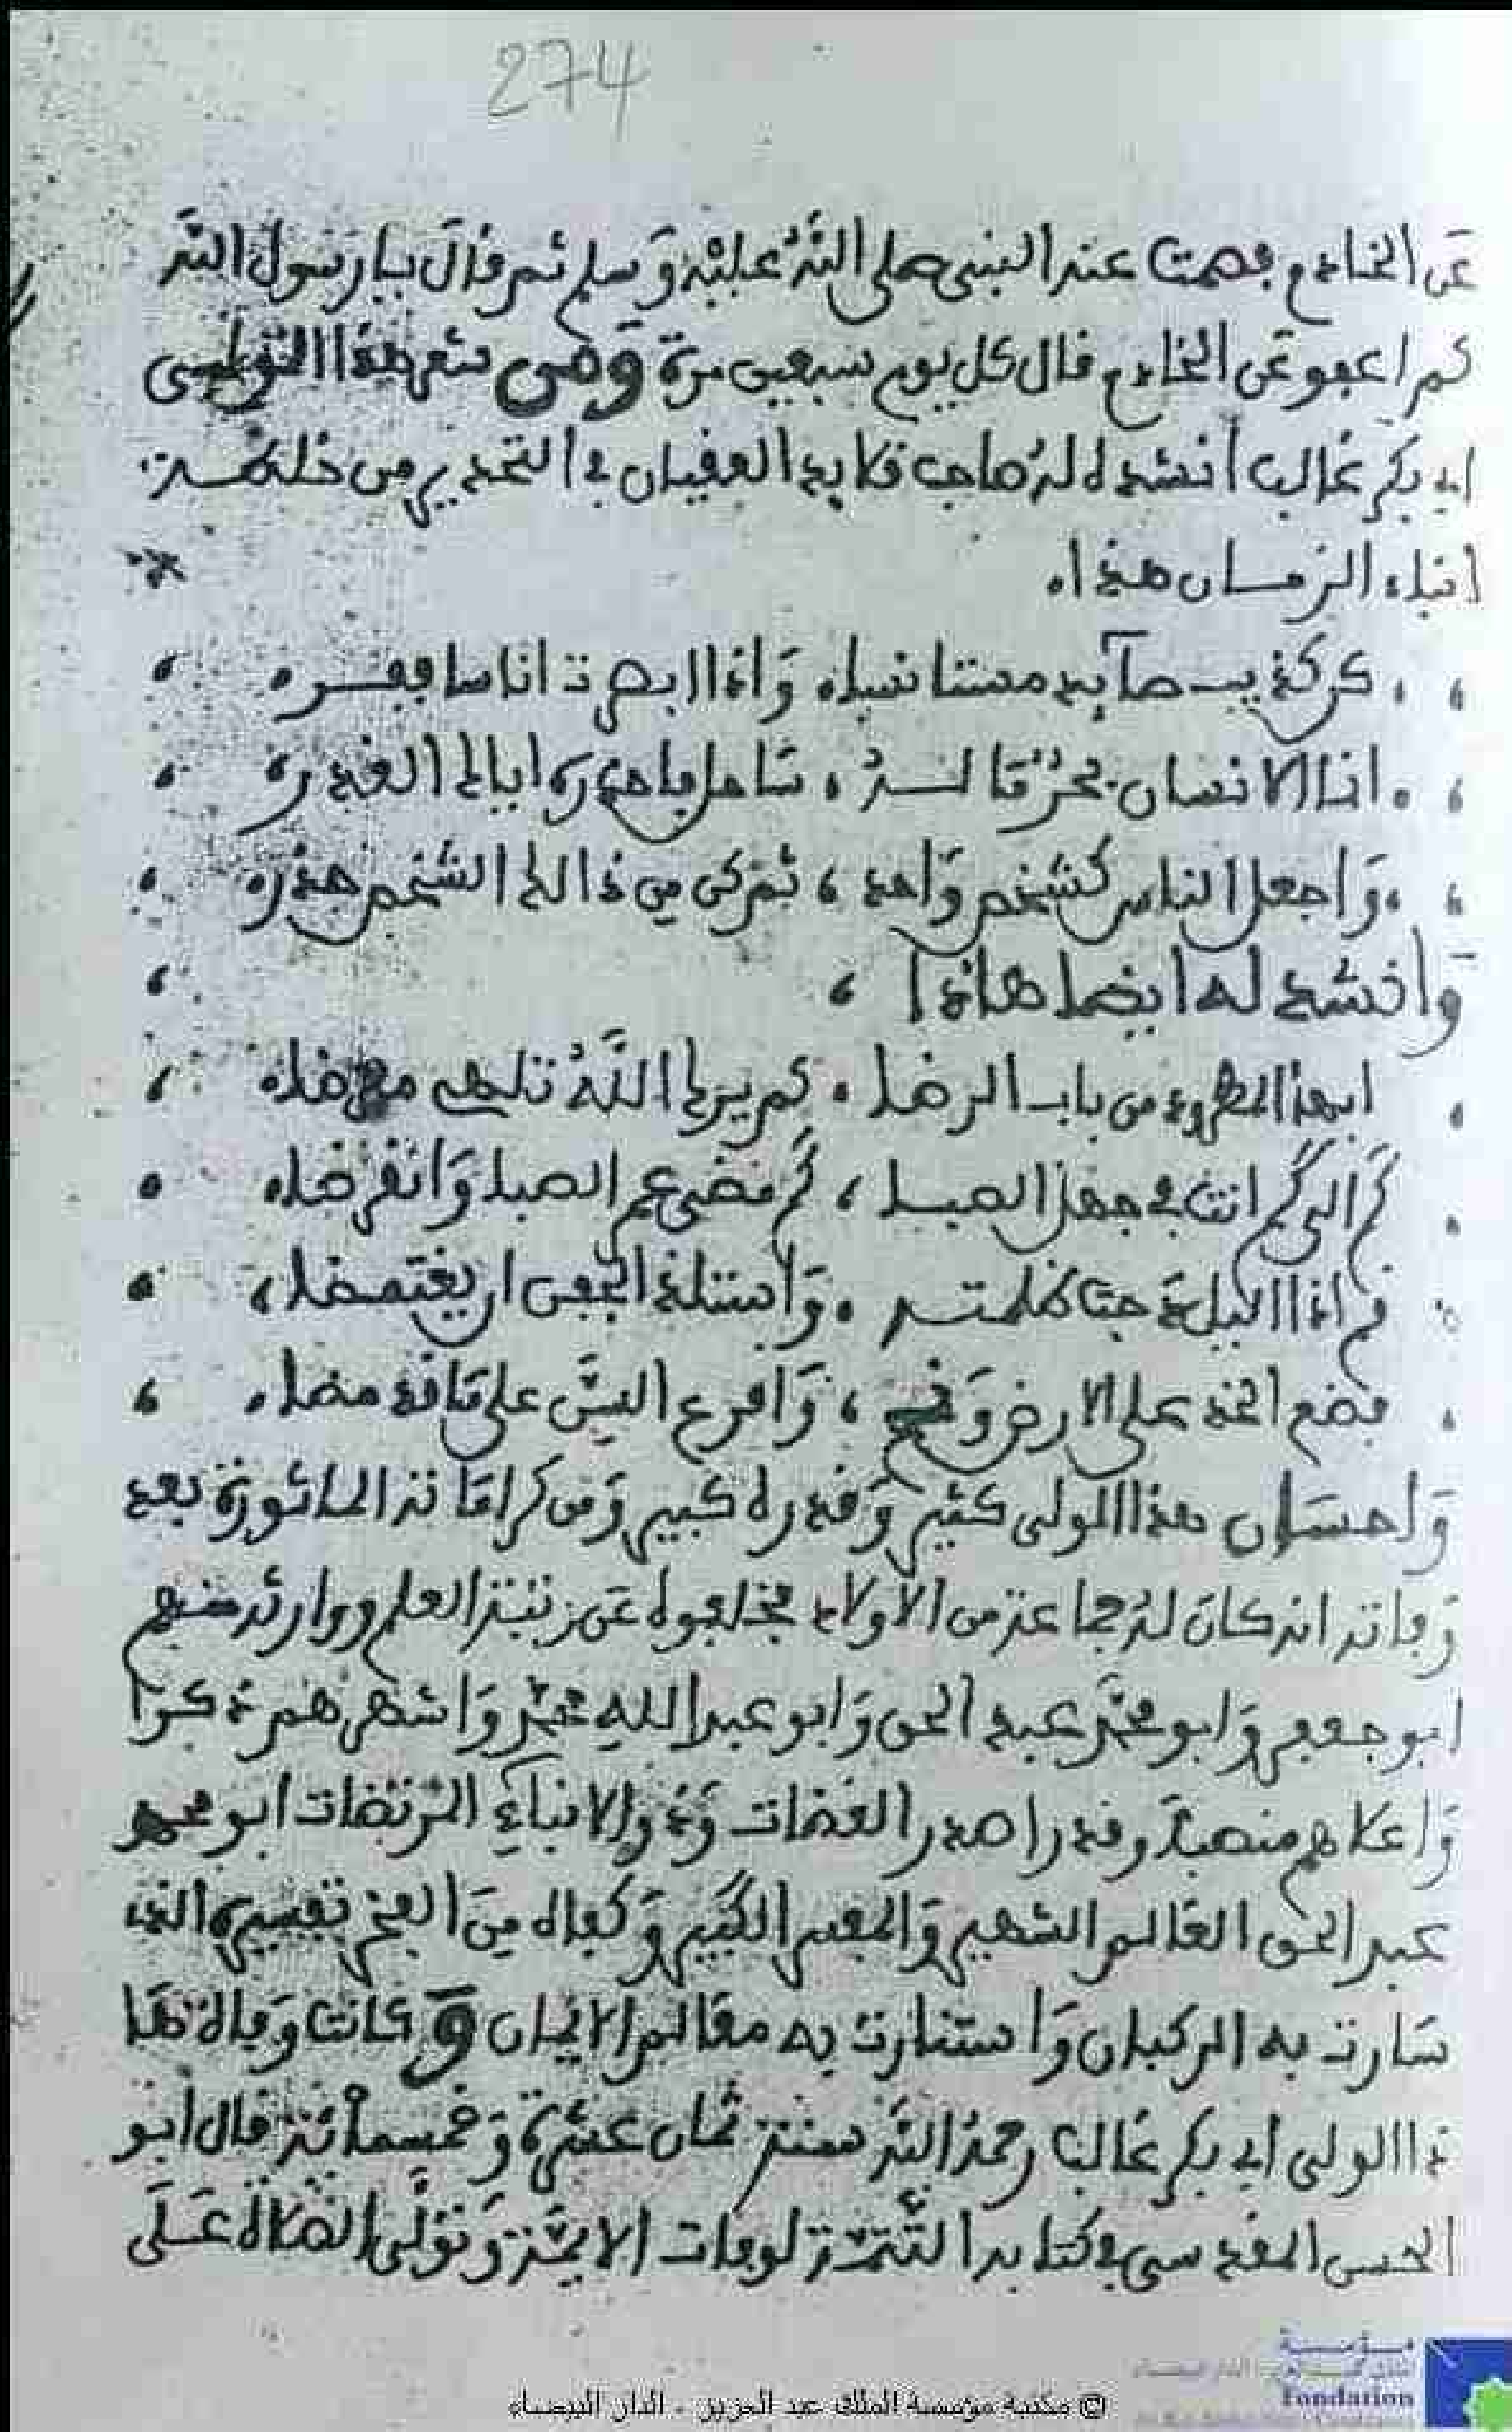 274
عن الخادم فصمت عنه النبي صلى الله عليه وسلم ثم قال يا رسول الله
كم اعفو عن الخادم قال كل يوم سبعين مرة ومن شعر هذا
ابي بكر غالب انشده له صاحب قلايد العقيان في التحذير من خلطة
ابناء الزمان هذا
كن كذيب صايد مستانسا وإذا ابصرت انسانا ففر
انما الانسان بحر ما له ساحل فاحذره اياك الغرر
واجعل الناس كشخص واحد ثم كن من ذالك الشخص حذر
وانشد له ايضا هاذا
ايها المطرود من باب الرضا كم يراك الله تلهى معرضا
كم الى كم انت في جهل الصبا كم مضى عمر الصبا وانقرضا
قم اذا الليل دجت ظلمته واستلذ الجفن ان يغتمضا
فضع الخد على الارض ونح واقرع السن على ما قد مضا
واحسان هذا المولى كثير وقدره كبير ومن كراماته الماثورة بعد
وفاته انه كان له جماعة من الاولاد فخلفوه عن زينة العلم ووارثه منهم
ابو جعفر وابو محمد عبد الحق وابو عبد الله محمد واشهرهم ذكرا
واعلاهم منصبا وقدرا صدر القضات وذو الانباء المرتضات ابو محمد
عبد الحق العالم الشهير والمفسر الكبير وكفاه من الفخر تفسيره الذي
سارت به الركبان واستنارت به معالم الايمان وكانت وفاة هاذا
الولي ابي بكر غالب رحمه الله سنة ثمان عشرة وخمسمائة قال ابو
الحسن المقدسي في كتابه التتمة لوفات الايمة وتولى الصلاة على
© مكتبة مؤسسة الملك عبد العزيز - الدار البيضاء
مؤسسة
Fondation